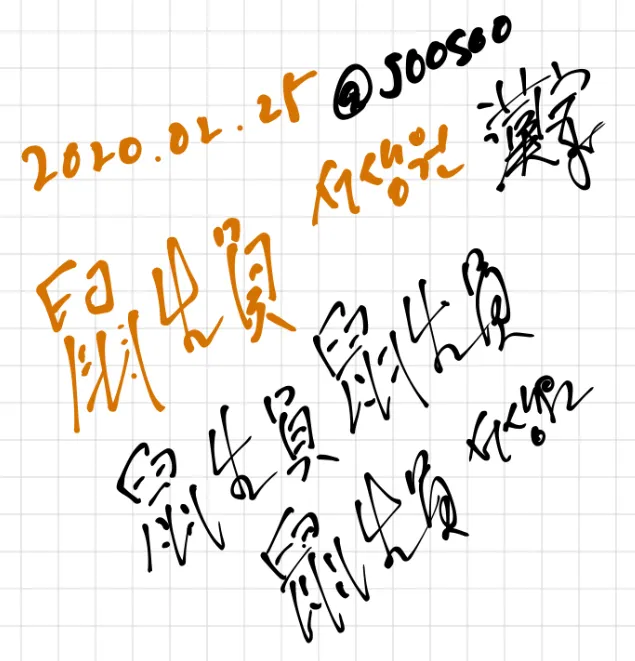 2020.02.25 @soosoo
서생원 漢字
鼠生員
鼠生員
鼠生員 서생원
鼠生員